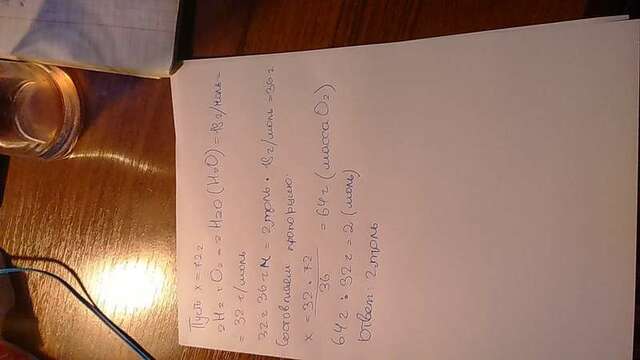 Пусть x = 72 г
2H2 + O2 = 2H2O (H2O) = 18 г/моль =
= 32 г/моль
32 г 36 г M = 2 моль · 18 г/моль = 36 г
Составляем пропорцию:
x = 32 · 72 / 36 = 64 г (масса O2)
64 г : 32 г = 2 (моль)
Ответ: 2 моль